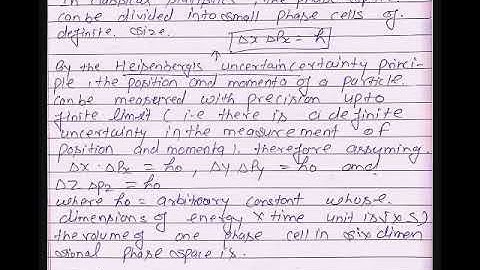 In classical statistics, the phase
can be divided into small phase cells of
definite size. Δx ΔPx = h
By the Heisenberg's uncertaincertainty princi-
ple, the position and momento of a particle
can be measured with precision upto
finite limit (i.e there is a definite
uncertainty in the measurement of
position and momenta), therefore assuming.
Δx · ΔPx = ho, ΔY ΔPy = ho and
ΔZ ΔPz = ho
where ho = arbitoary constant whose
dimensions of energy x time unit is (J x S)
the volume of one phase cell in six dimen
sional phase space is.